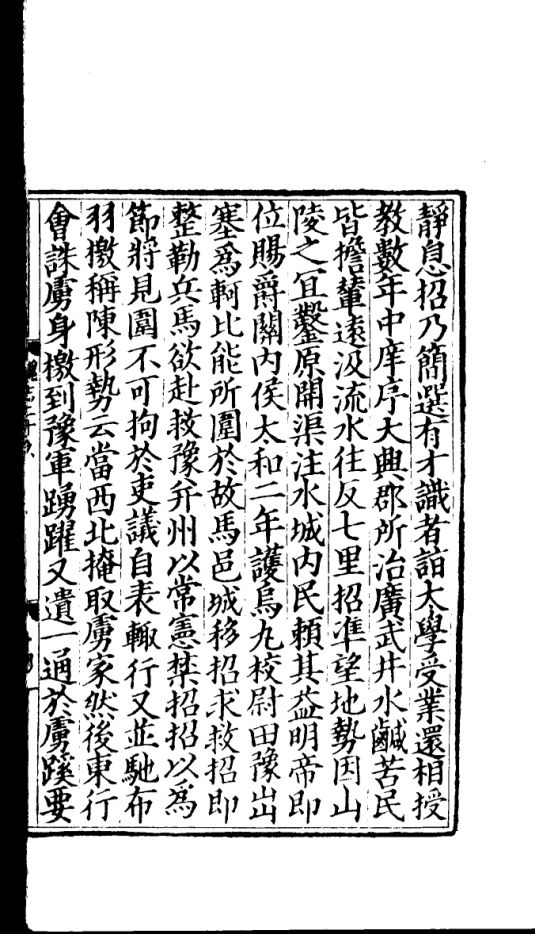 靜息招乃簡選有才識者詣太學受業還相授
教數年中庠序大興郡所治廣武井水鹹苦民
皆擔輦遠汲流水往反七里招準望地勢因山
陵之宜鑿原開渠注水城內民賴其益明帝即
位賜爵關內侯太和二年護烏九校尉田豫出
塞爲軻比能所圍於故馬邑城移招求救招即
整勒兵馬欲赴救豫幷州以常憲禁招招以爲
節將見圍不可拘於吏議自表輒行又並馳布
羽檄稱陳形勢云當西北掩取虜家然後東行
會誅虜身檄到豫軍踴躍又遺一通於虜蹊要